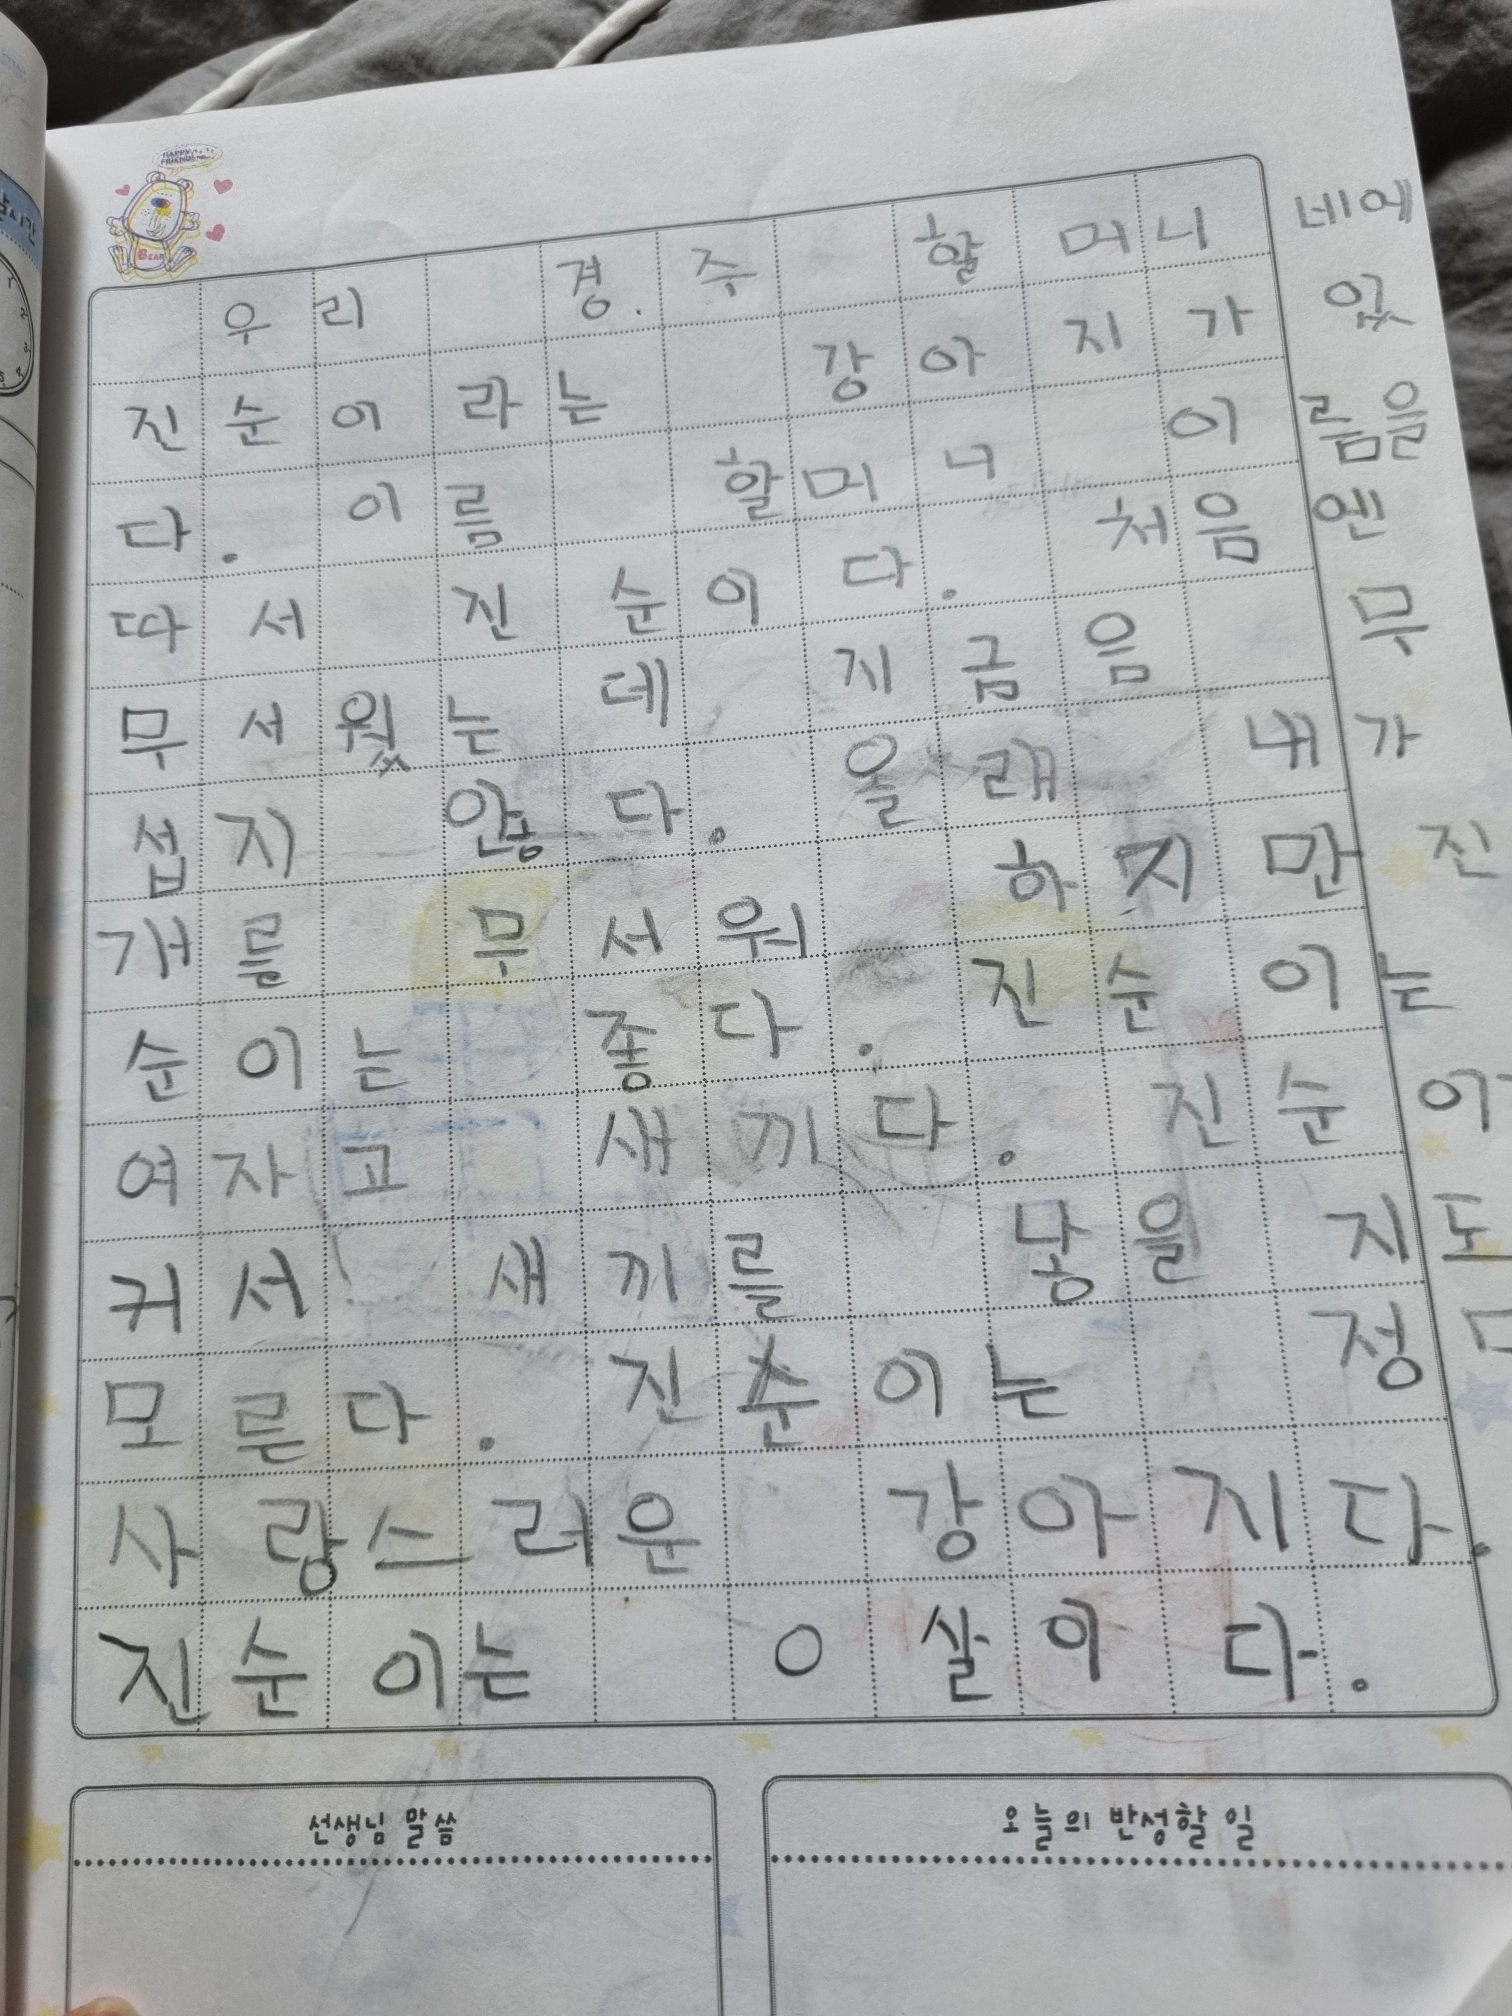 HAPPY FRIENDS
BEAR
우리 경주 할머니 네에
진순이라는 강아지가 있
다. 이름 할머니 이름을
따서 진순이다. 처음엔
무서웠는데 지금음 무
섭지 안다. 올래 내가
개를 무서워 하지만 진
순이는 좋다. 진순이는
여자고 새끼다. 진순이
커서 새끼를 낳을 지도
모른다. 진순이는 정
사랑스러운 강아지다.
진순이는 0살이다.
선생님 말씀
오늘의 반성할 일